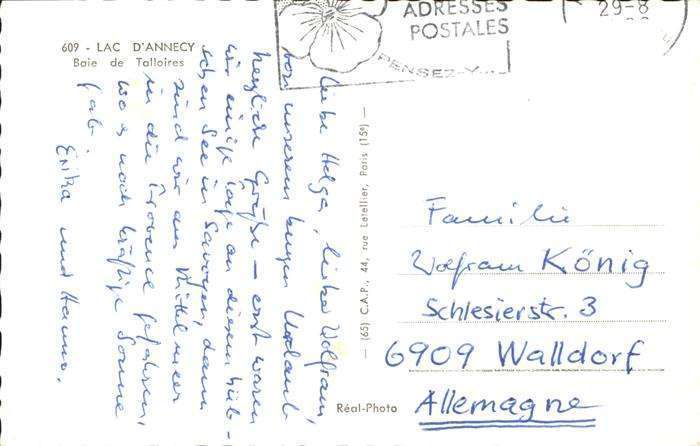 609 - LAC D'ANNECY
Baie de Talloires
ADRESSES
POSTALES
PENSEZ-Y...
29-8
Liebe Helga, lieber Wolfram,
von unserem kurzen Urlaub
herzliche Grüße – erst waren
wir einige Tage an diesem hüb-
schen See in Savoyen, dann
sind wir ans Mittelmeer
in die Provence gefahren,
wo es noch kräftige Sonne
gab.
Erika und Hanno.
— (65) C.A.P., 44, rue Letellier, Paris (15e) —
Réal-Photo
Familie
Wolfram König
Schlesierstr. 3
6909 Walldorf
Allemagne